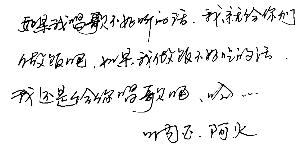 如果我唱歌不好听的话.我就给你们
做饭吧,如果我做饭不好吃的话.
我还是给你唱歌吧、哈…
叶 阿火